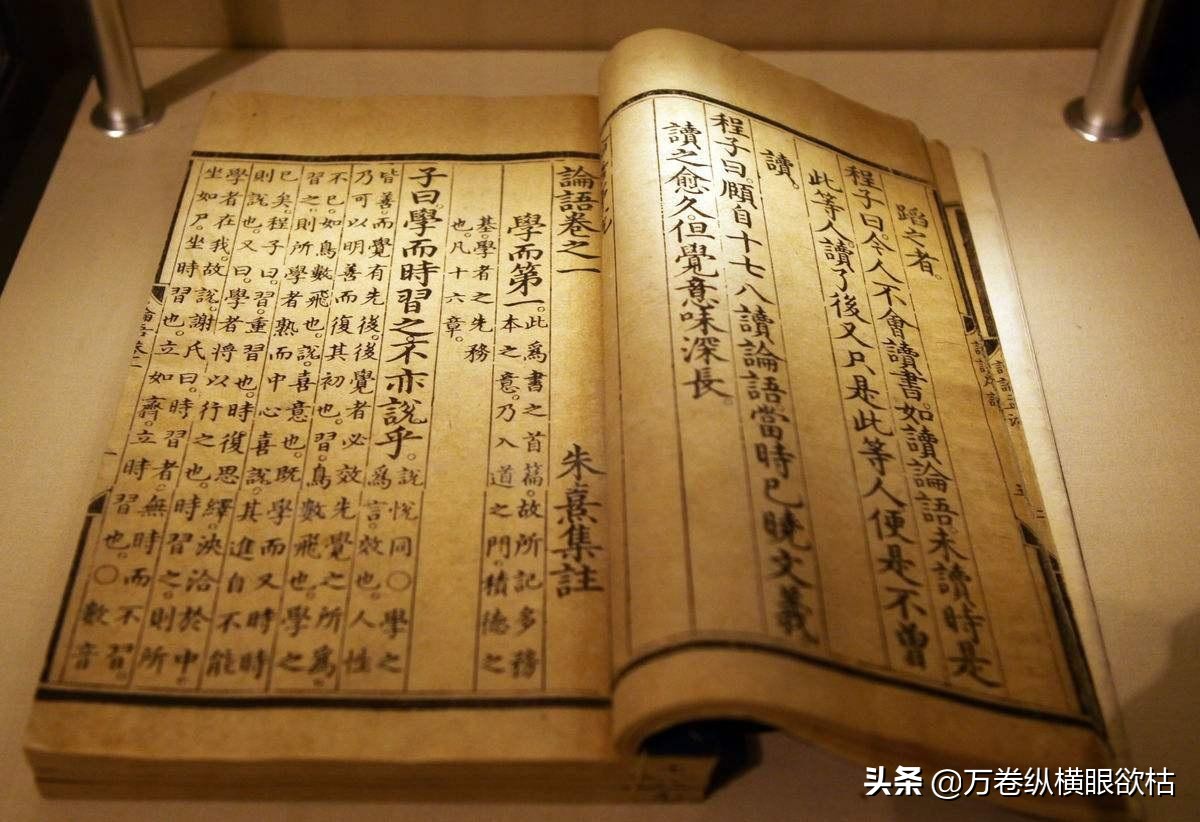 蹈之者。
程子曰。今人不會讀書。如讀論語。未讀時是
此等人。讀了後又只是此等人。便是不曾
讀。
程子曰。頤自十七八讀論語。當時已曉文義
讀之愈久。但覺意味深長。
論語卷之一 朱熹集註
學而第一。此爲書之首篇。故所記多務
本之意。乃入道之門。積德之
基。學者之先務
也。凡十六章。
子曰。學而時習之。不亦說乎。說悅同○學之
爲言效也。人性
皆善。而覺有先後。後覺者必效先覺之所爲。
乃可以明善而復其初也。習。鳥數飛也。學之
不已。如鳥數飛也。說。喜意也。既學而又時時
習之。則所學者熟。而中心喜說。其進自不能
已矣。程子曰。習。重習也。時復思繹。浹洽於中。
則說也。又曰。學者將以行之也。時習之。則所
學者在我。故說。謝氏曰。時習者。無時而不習。
坐如尸。坐時習也。立如齊。立時習也。○數音
头条 @万卷纵横眼欲枯